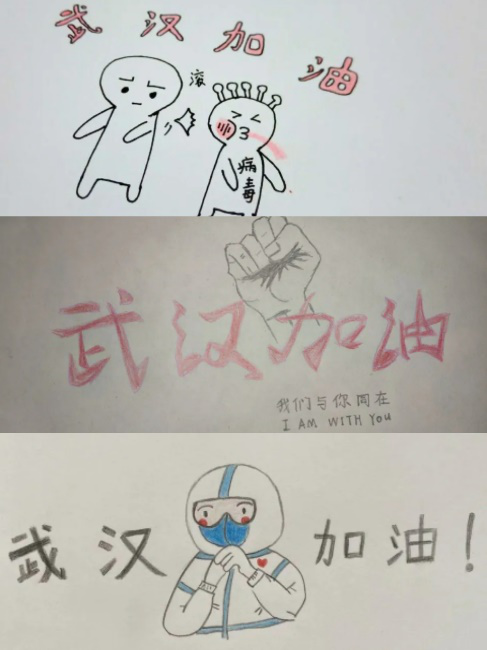 武汉加油
滚
病毒
武汉加油
我们与你同在
I AM WITH YOU
武汉加油!